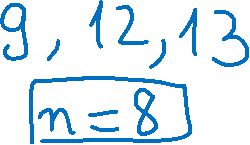 9, 12, 13
n = 8